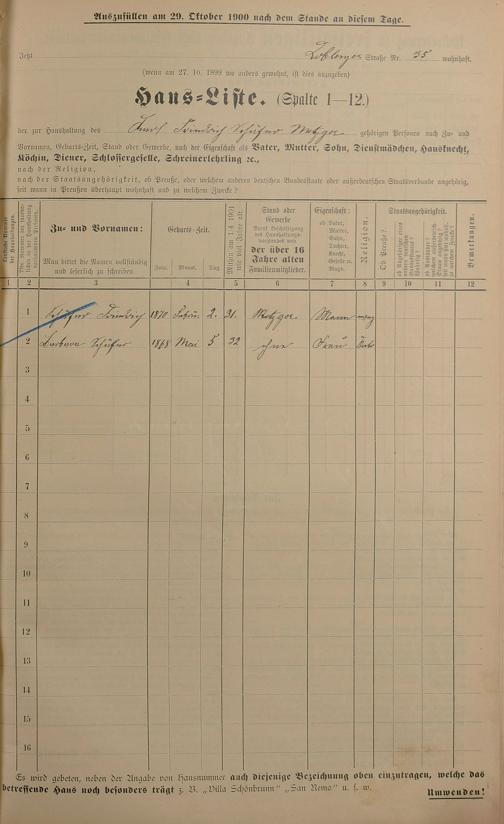 Auszufüllen am 29. Oktober 1900 nach dem Stande an diesem Tage.
Jetzt Straße Nr. 35 wohnhaft.
(wenn am 27. 10. 1899 wo anders gewohnt, ist dies anzugeben)
Haus=Liste. (Spalte 1—12.)
der zur Haushaltung des Friedrich Schäfer Metzger gehörigen Personen nach Zu- und
Vornamen, Geburts-Zeit, Stand oder Gewerbe, nach der Eigenschaft als Vater, Mutter, Sohn, Dienstmädchen, Hausknecht,
Köchin, Diener, Schlossergeselle, Schreinerlehrling ꝛc.,
nach der Religion,
nach der Staatsangehörigkeit, ob Preuße, oder welchem anderen deutschen Bundesstaate oder außerdeutschen Staatsverbande angehörig,
seit wann in Preußen überhaupt wohnhaft und zu welchem Zwecke?
Zu- und Vornamen:
Man bittet die Namen vollständig
und leserlich zu schreiben.
Geburts-Zeit.
Jahr. Monat. Tag.
Wird am 1/4 1901
wie viel Jahre alt:
Stand oder
Gewerbe
der über 16
Jahre alten
Familienmitglieder.
Eigenschaft:
ob Vater,
Mutter,
Sohn,
Tochter,
Knecht,
Geselle o.
Magd.
Religion.
Staatsangehörigkeit.
Ob Preuße?
Bemerkungen.
1 2 3 4 5 6 7 8 9 10 11 12
1 Schäfer Friedrich 1870 Febru. 2. 31. Metzger Mann
2 Barbara Schäfer 1868 Mai 5 32 ohne Frau
3
4
5
6
7
8
9
10
11
12
13
14
15
16
Es wird gebeten, neben der Angabe von Hausnummer auch diejenige Bezeichnung oben einzutragen, welche das
betreffende Haus noch besonders trägt z. B. „Villa Schönbrunn" „San Remo" u. s. w.
Umwenden!